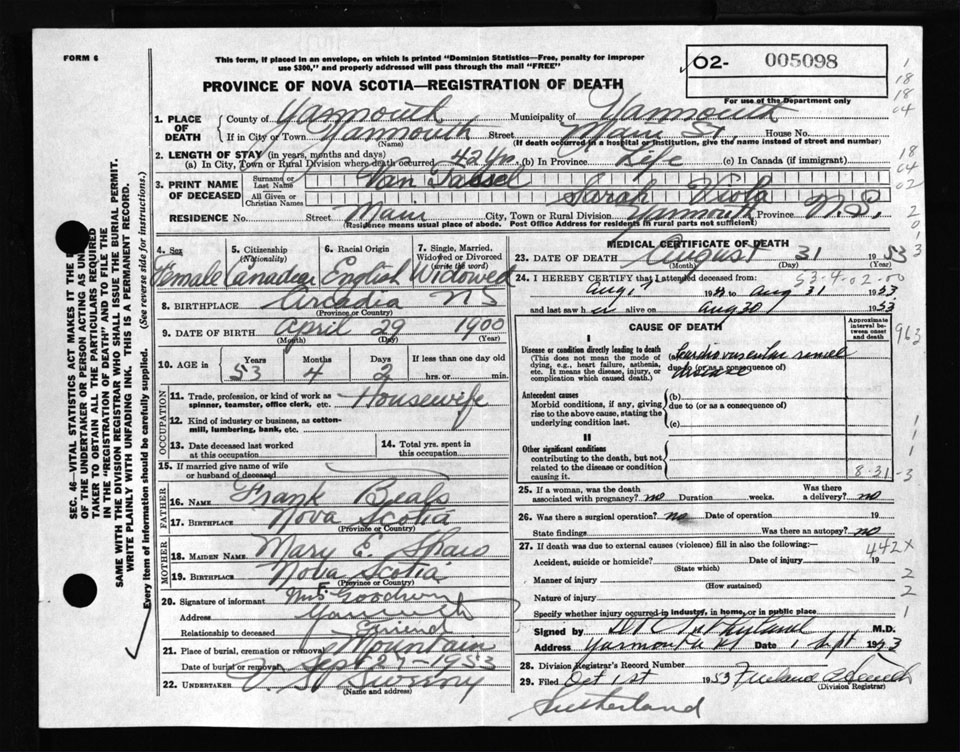 FORM 6
This form, if placed in an envelope, on which is printed "Dominion Statistics—Free, penalty for improper
use $300," and properly addressed will pass through the mail "FREE"
02- 005098
For use of the Department only
PROVINCE OF NOVA SCOTIA—REGISTRATION OF DEATH
1. PLACE OF DEATH
County of Yarmouth Municipality of Yarmouth
If in City or Town Yarmouth Street Main St. House No.
(Name) (If death occurred in a hospital or institution, give the name instead of street and number)
2. LENGTH OF STAY (in years, months and days)
(a) In City, Town or Rural Division where death occurred 42 Yrs. (b) In Province Life (c) In Canada (if immigrant)
3. PRINT NAME OF DECEASED
Surname or Last Name Van Tassel
All Given or Christian Names Sarah Viola
RESIDENCE No. Street Main City, Town or Rural Division Yarmouth Province N.S.
(Residence means usual place of abode. Post Office Address for residents in rural parts not sufficient)
4. Sex Female
5. Citizenship (Nationality) Canadian
6. Racial Origin English
7. Single, Married, Widowed or Divorced (write the word) Widowed
8. BIRTHPLACE Arcadia N S
(Province or Country)
9. DATE OF BIRTH April 29 1900
(Month) (Day) (Year)
10. AGE in Years 53 Months 4 Days 2 If less than one day old hrs. or min.
OCCUPATION
11. Trade, profession, or kind of work as spinner, teamster, office clerk, etc. Housewife
12. Kind of industry or business, as cotton-mill, lumbering, bank, etc.
13. Date deceased last worked at this occupation
14. Total yrs. spent in this occupation
15. If married give name of wife or husband of deceased
FATHER
16. NAME Frank Beals
17. BIRTHPLACE Nova Scotia
(Province or Country)
MOTHER
18. MAIDEN NAME Mary E. Shaw
19. BIRTHPLACE Nova Scotia
(Province or Country)
20. Signature of informant Mrs Goodwin
Address Yarmouth
Relationship to deceased Friend
21. Place of burial, cremation or removal Mountain
Date of burial or removal Sept 27-1953
22. UNDERTAKER V. S. Sweeny
(Name and address)
MEDICAL CERTIFICATE OF DEATH
23. DATE OF DEATH August 31 1953
(Month) (Day) (Year)
24. I HEREBY CERTIFY that I attended deceased from: 53-4-02-00
Aug 31 1953
and last saw h er alive on Aug 30 1953
CAUSE OF DEATH
Approximate interval between onset and death
I
Disease or condition directly leading to death
(This does not mean the mode of dying, e.g., heart failure, asthenia, etc. It means the disease, injury, or complication which caused death.)
(a) Cardio vascular renal disease
due to (or as a consequence of)
Antecedent causes
Morbid conditions, if any, giving rise to the above cause, stating the underlying condition last.
(b)
due to (or as a consequence of)
(c)
II
Other significant conditions
contributing to the death, but not related to the disease or condition causing it.
8-31-3
25. If a woman, was the death associated with pregnancy? no Duration weeks. Was there a delivery? no
26. Was there a surgical operation? no Date of operation 19
State findings Was there an autopsy? no
27. If death was due to external causes (violence) fill in also the following:— 442X
Accident, suicide or homicide? Date of injury 19
(State which)
Manner of injury
(How sustained)
Nature of injury
Specify whether injury occurred in industry, in home, or in public place
Signed by Sutherland M.D.
Address Yarmouth Date 1 Sept 1953
28. Division Registrar's Record Number
29. Filed Oct 1st 1953
(Division Registrar)
Sutherland
SEC. 46—VITAL STATISTICS ACT MAKES IT THE
OF THE UNDERTAKER OR PERSON ACTING AS
TAKER TO OBTAIN ALL THE PARTICULARS REQUIRED
IN THE "REGISTRATION OF DEATH" AND TO FILE THE
SAME WITH THE DIVISION REGISTRAR WHO SHALL ISSUE THE BURIAL PERMIT.
WRITE PLAINLY WITH UNFADING INK. THIS IS A PERMANENT RECORD.
Every item of information should be carefully supplied. (See reverse side for instructions.)
1
18
18
04
18
04
02
2
0
1
3
963
1
1
1
2
2
1